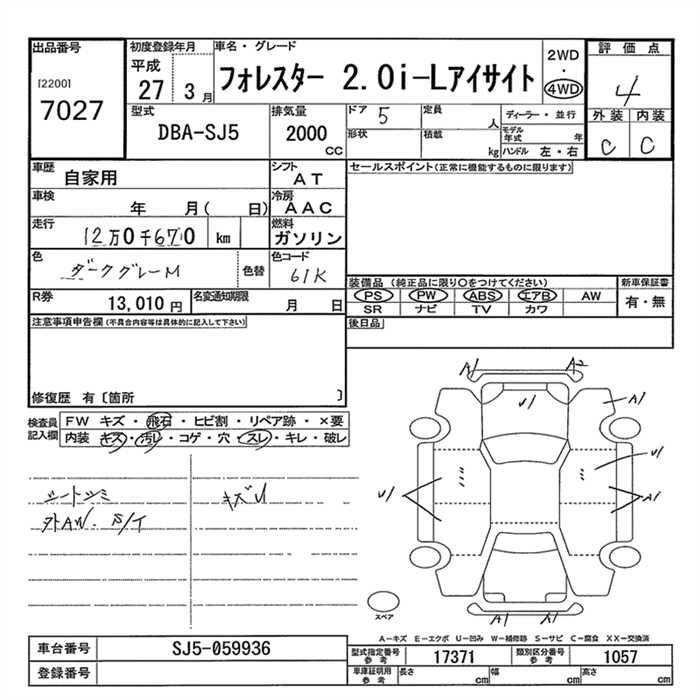 出品番号
[2200]
7027
初度登録年月
平成
27 3月
車名・グレード
フォレスター 2.0i-Lアイサイト
2WD
・
4WD
評価点
4
外装 内装
C C
型式
DBA-SJ5
排気量
2000
CC
ドア 5
定員
人
形状
積載
kg
ディーラー・並行
モデル年式 年
ハンドル 左・右
車歴
自家用
シフト
AT
セールスポイント(正常に機能するものに限ります)
車検
年 月( 日)
冷房
AAC
走行
12万0千670 km
燃料
ガソリン
色
ダークグレーM
色替
色コード
61K
装備品 (純正品に限り○をつけてください)
PS PW ABS エアB AW
SR ナビ TV カワ
新車保証書
有・無
R券
13,010円
名変通知期限
月 日
後日品
注意事項申告欄(不具合内容等は具体的に記入して下さい)
修復歴 有〔箇所 〕
検査員
記入欄
FW キズ・飛石・ヒビ割・リペア跡・×要
内装 キズ・汚レ・コゲ・穴・スレ・キレ・破レ
シートシミ
外AW. S/T
キズU
A1 A2
U1
A1
U1
U1
A1
A1 A1
スペア
A-キズ E-エクボ U-凹み W-補修跡 S-サビ C-腐食 XX-交換済
車台番号
SJ5-059936
登録番号
型式指定番号
参考
17371
類別区分番号
参考
1057
車庫証明用
参考
長さ cm
幅 cm
高さ cm